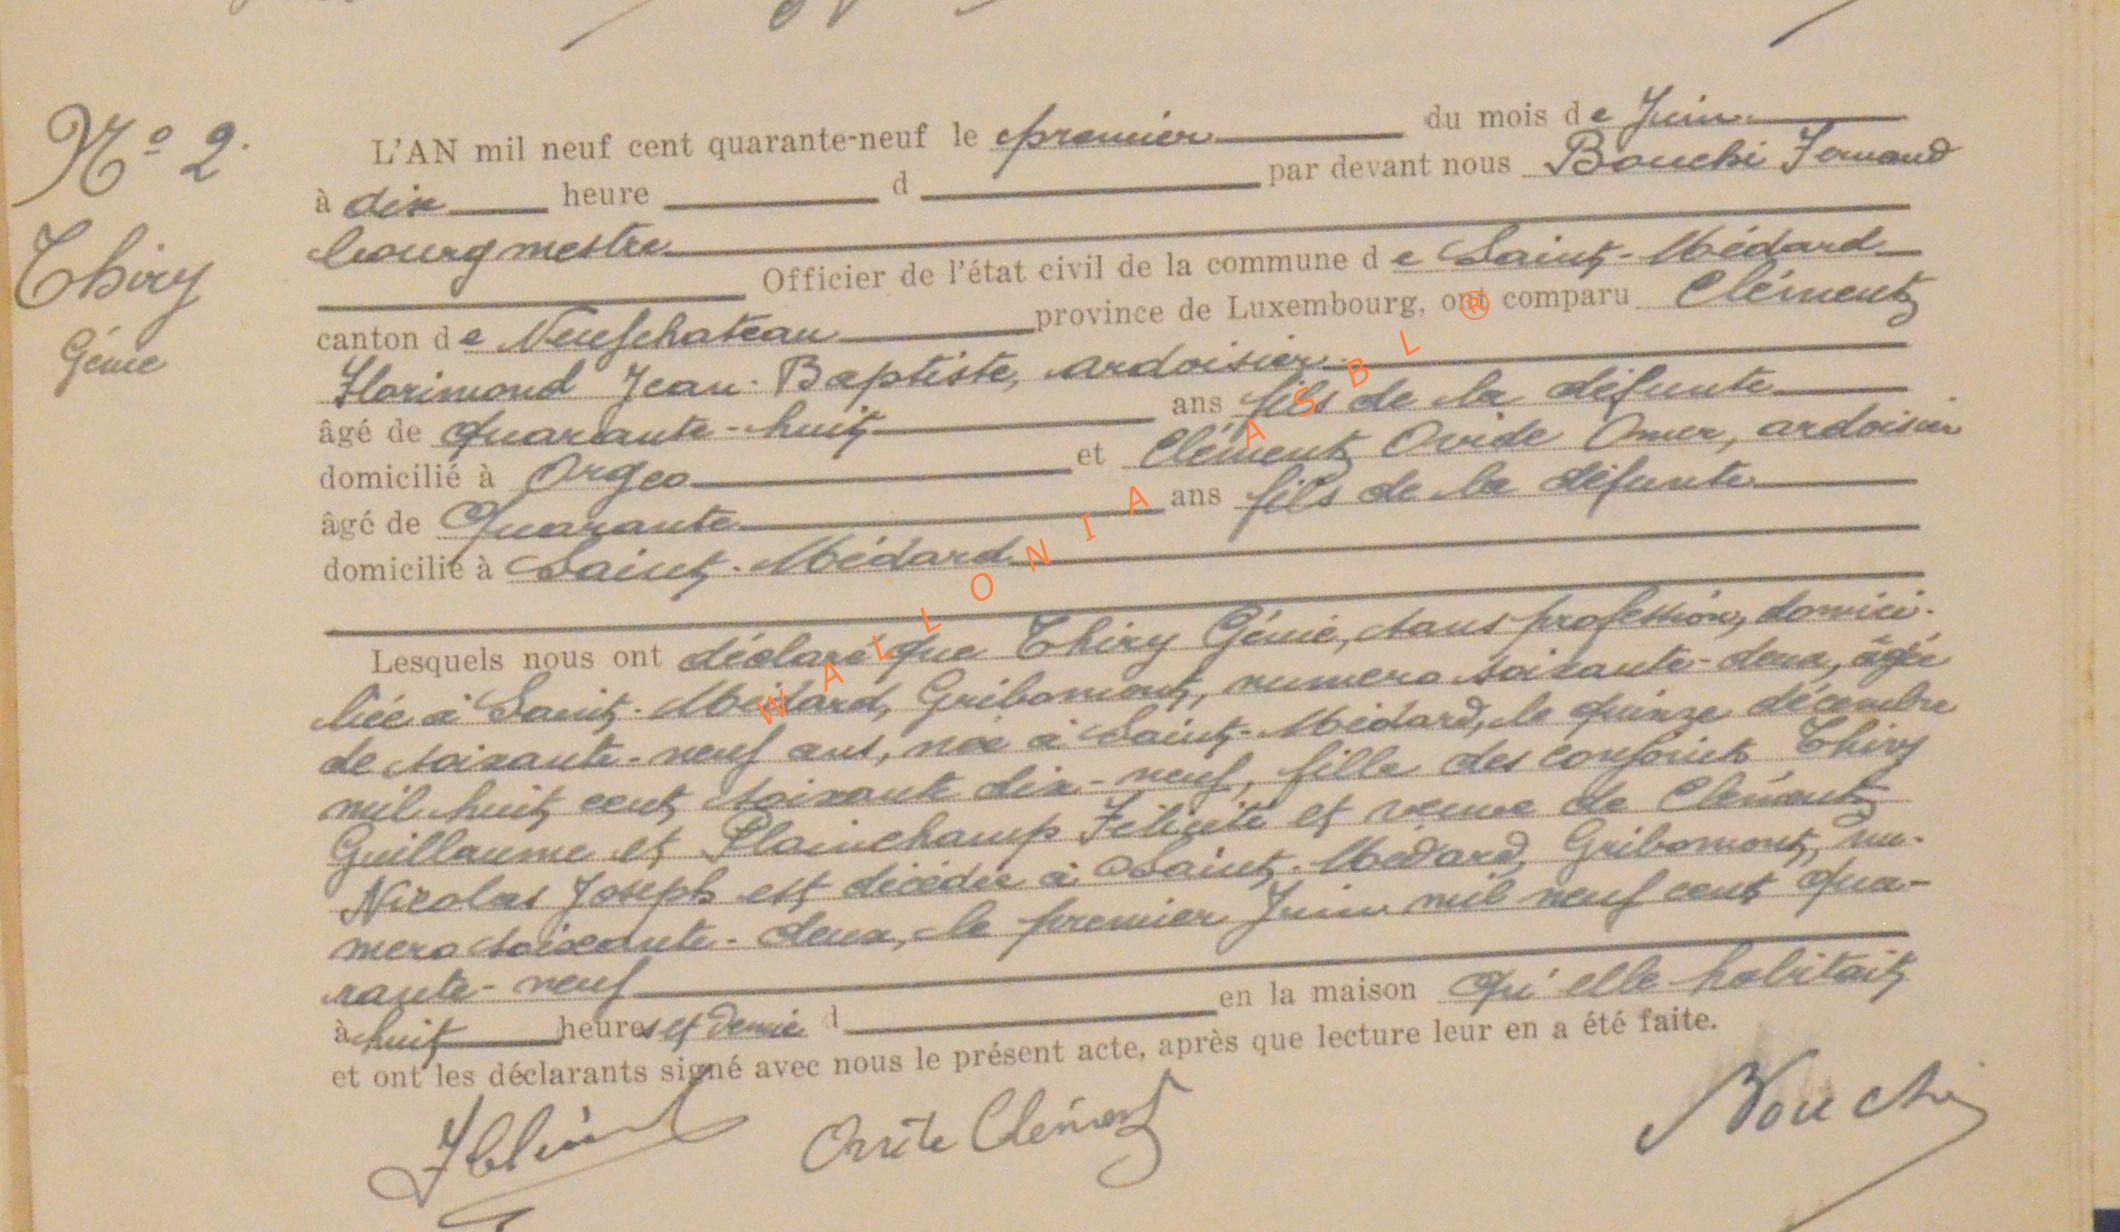 Nº 2.
Thiry
Génie
L'AN mil neuf cent quarante-neuf le premier du mois de Juin
à dix heure d par devant nous Bouchi Fernand
bourgmestre
Officier de l'état civil de la commune de Saint-Médard
canton de Neufchateau province de Luxembourg, ont comparu Clément
Florimond Jean-Baptiste, ardoisier
âgé de quarante-huit ans fils de la défunte
domicilié à Orgeo et Clément Ovide Omer, ardoisier
âgé de Quarante ans fils de la défunte
domicilié à Saint-Médard
Lesquels nous ont déclaré que Thiry Génie, sans profession, domici-
liée à Saint-Médard, Gribomont, numero soixante-deux, âgée
de soixante-neuf ans, née à Saint-Médard, le quinze décembre
mil huit cent soixante dix-neuf, fille des conjoints Thiry
Guillaume et Plainchamp Félicité et veuve de Clément
Nicolas Joseph est décédée à Saint-Médard, Gribomont, nu-
mero soixante-deux, le premier Juin mil neuf cent qua-
rante-neuf
à huit heures et demie d en la maison qu'elle habitait
et ont les déclarants signé avec nous le présent acte, après que lecture leur en a été faite.
Clément
Bouchi
WALLONIA ASBL ®